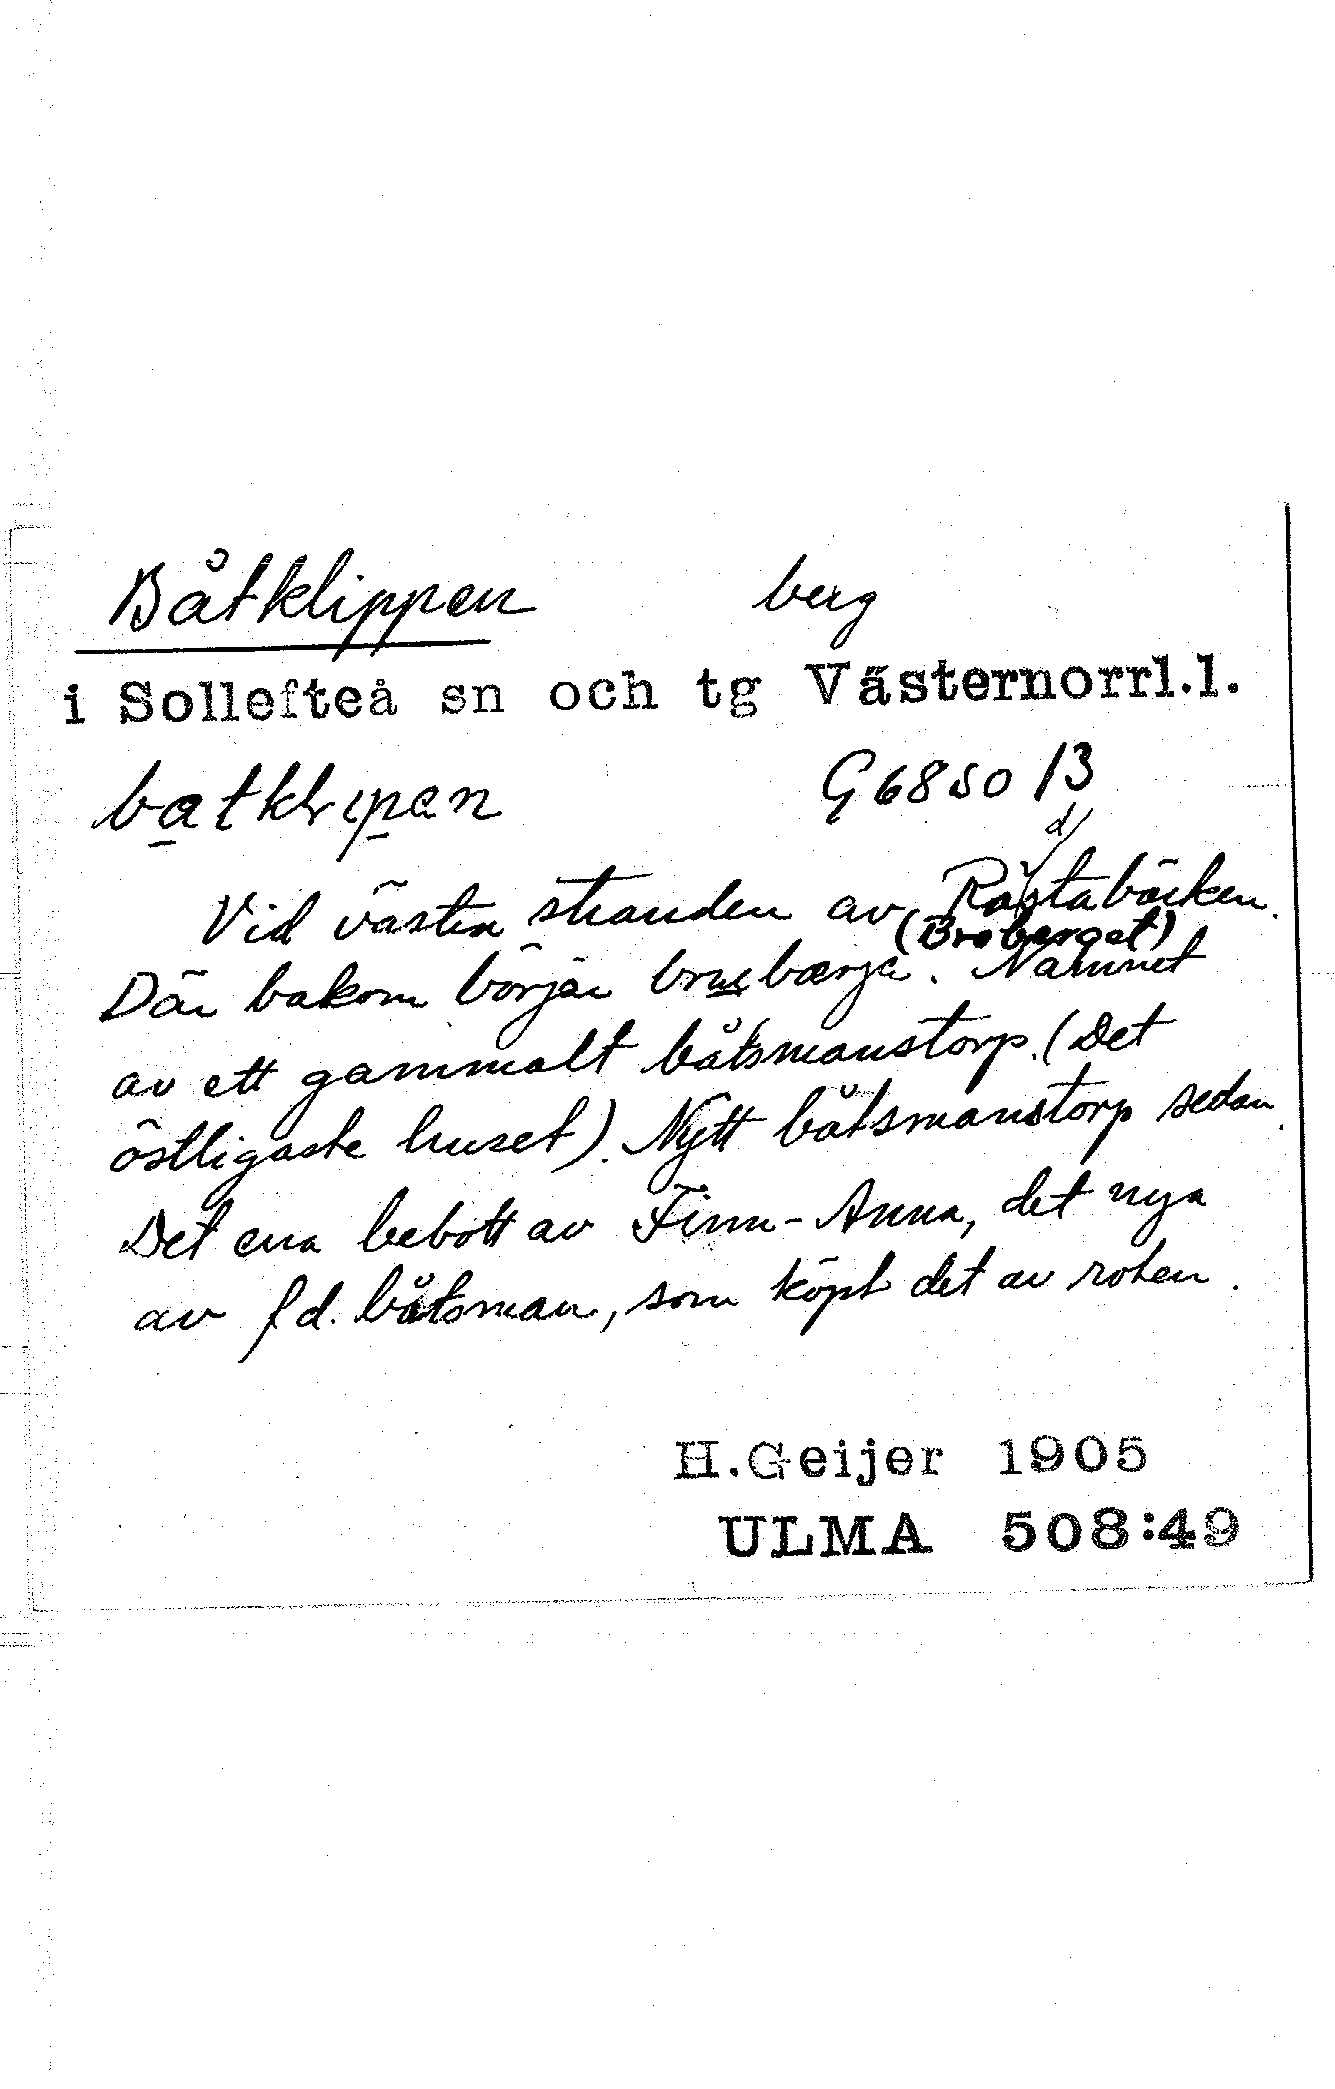 Båtklippen berg
i Sollefteå sn och tg Västernorrl.l.
batklipan G6850 /3
d/
Vid västra stranden av Råstabäcken.
(Broberget)
Där bakom börjar brubærje. Namnet
av ett gammalt båtsmanstorp. (Det
östligaste huset). Nytt båtsmanstorp sedan.
Det ena bebott av Finn-Anna, det nya
av f d. båtsman, som köpt det av roten.
H.Geijer 1905
ULMA 508:49